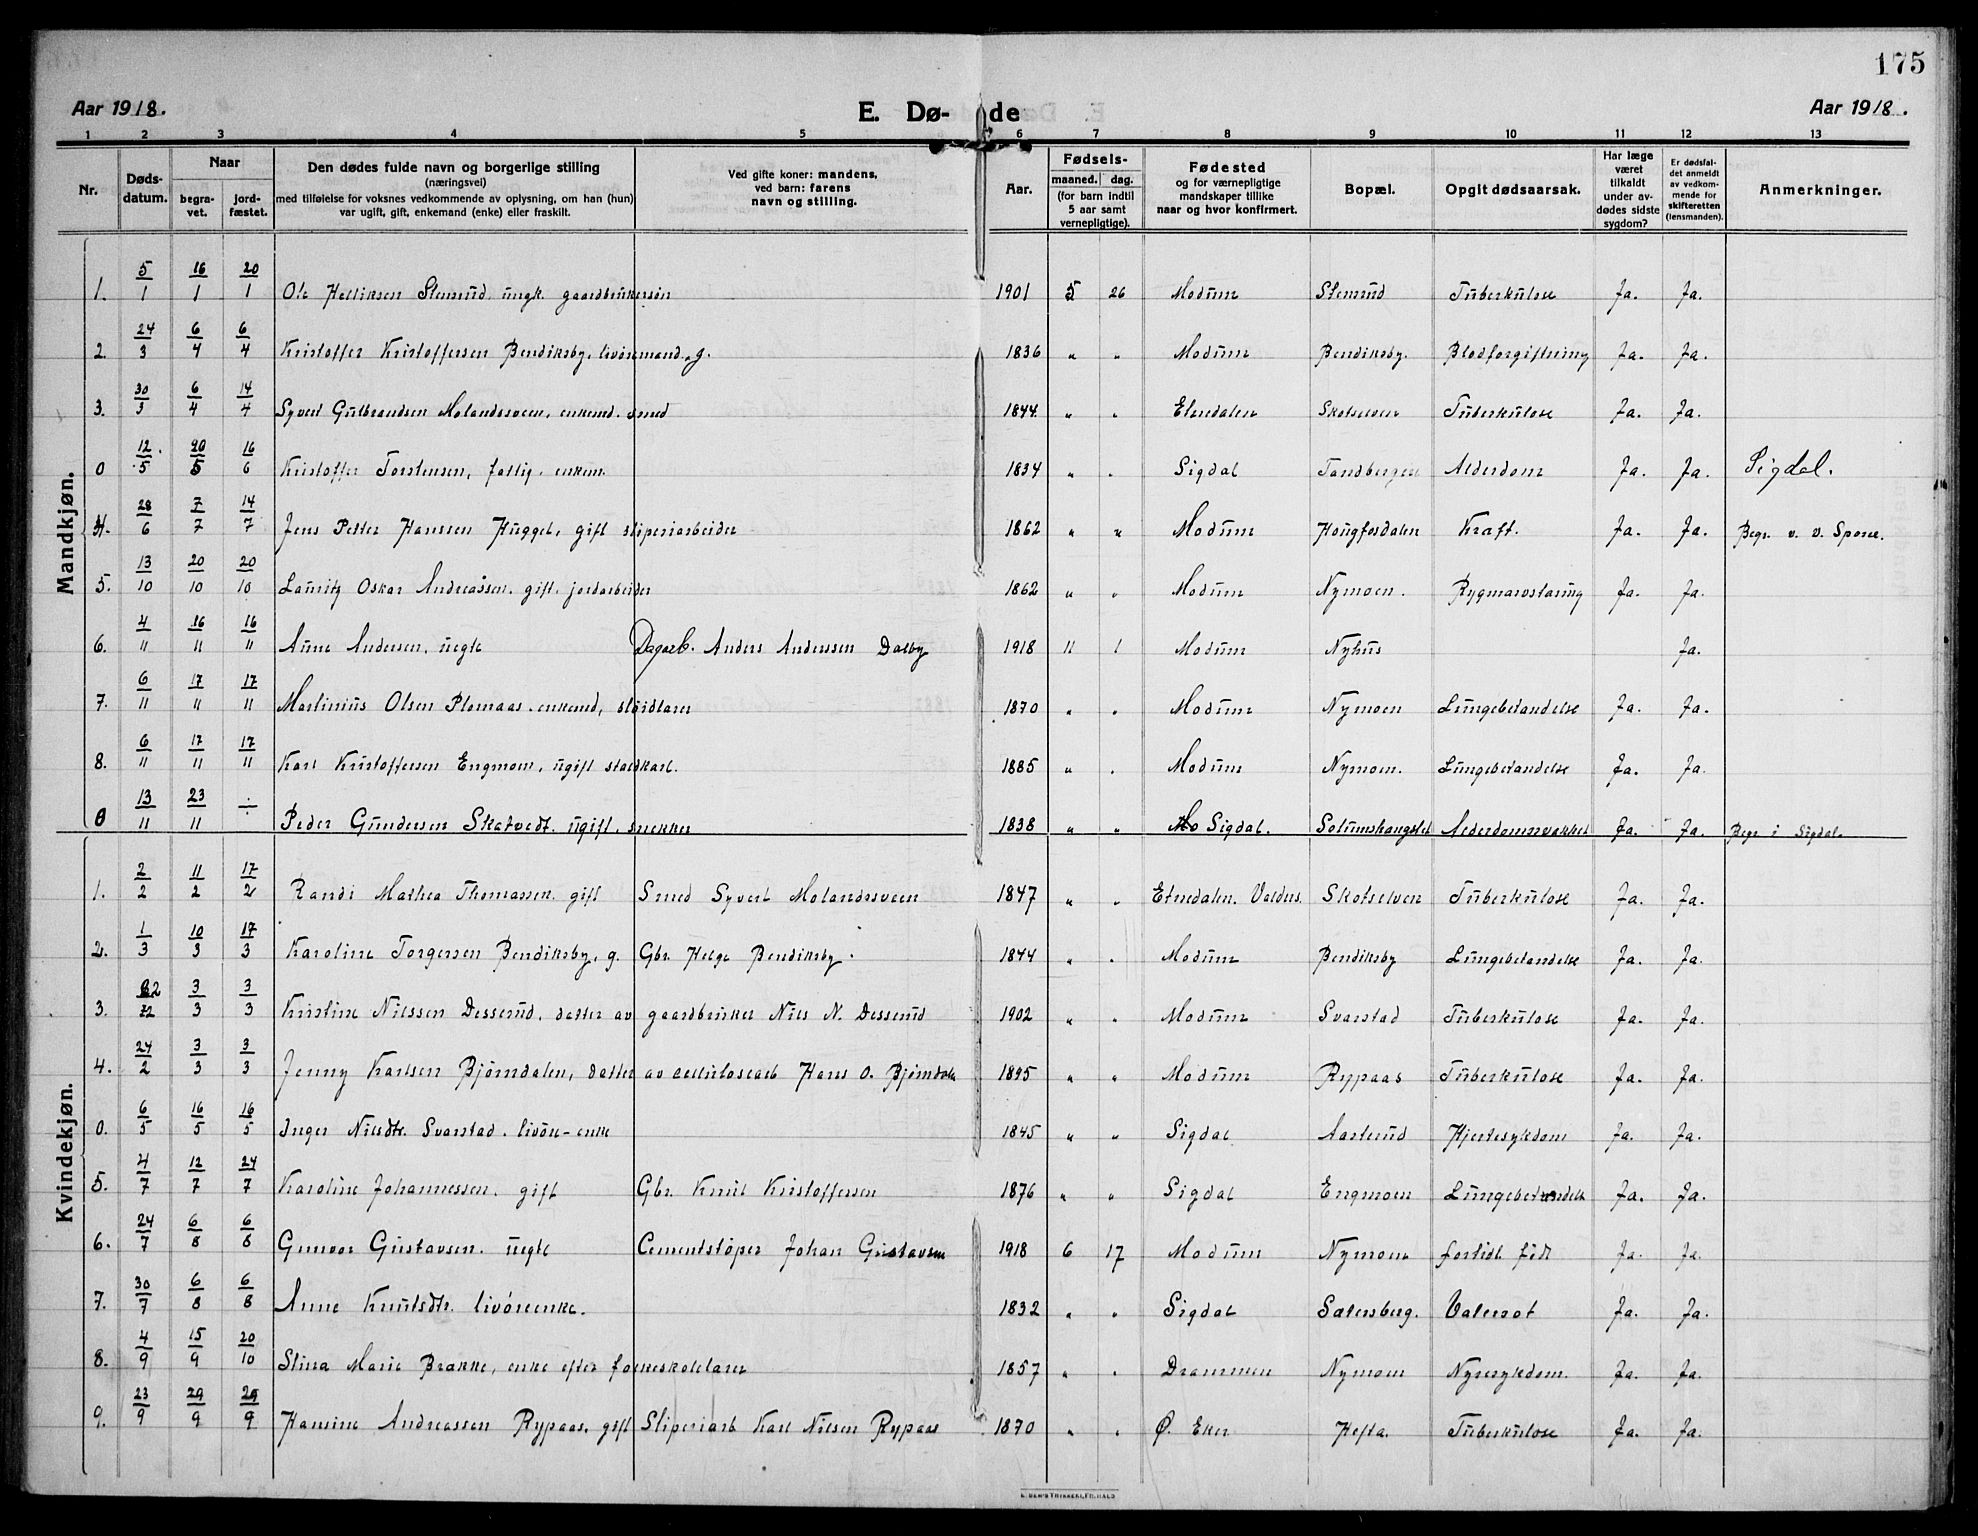 175
Aar 1918. E. Dø- de Aar 1918.
1 2 3 4 5 6 7 8 9 10 11 12 13
Nr. Døds-datum. Naar begra-vet. jord-fæstet. Den dødes fulde navn og borgerlige stilling (næringsvei) med tilføielse for voksnes vedkommende av oplysning, om han (hun) var ugift, gift, enkemand (enke) eller fraskilt. Ved gifte koner: mandens, ved barn: farens navn og stilling. Aar. Fødsels- maaned. dag. (for barn indtil 5 aar samt vernepligtige). Fødested og for værnepligtige mandskaper tillike naar og hvor konfirmert. Bopæl. Opgit dødsaarsak. Har læge været tilkaldt under av-dødes sidste sygdom? Er dødsfal-det anmeldt av vedkom-mende for skifteretten (lensmanden). Anmerkninger.
Mandkjøn.
1. 5/1 16/1 20/1 Ole Helliksen Stensrud. ungk. gaardbrukersøn 1901 5 26 Modum Stensrud Tuberkulose Ja. Ja.
2. 24/3 6/4 6/4 Kristoffer Kristoffersen Bendiksby, livøremand. g. 1836 " " Modum Bendiksby. Blodforgiftning Ja. Ja.
3. 30/3 6/4 14/4 Syvert Gulbrandsen Molandssveen, enkemd. smed 1844 " " Etnedalen Skotselven Tuberkulose Ja. Ja.
0 12/5 20/5 16/6 Kristoffer Torstensen, fattig. enkem. 1834 " " Sigdal Tandbergeie Alderdom Ja. Ja. Sigdal.
4. 28/6 7/7 14/7 Jens Petter Hanssen Hugget, gift sliperiarbeider 1862 " " Modum Hougfosdalen Kraft. Ja. Ja. Begr. v. v. Spone.
5. 13/10 20/10 20/10 Lauritz Oskar Andreassen. gift. jordarbeider 1862 " " Modum Nymoen. Rygmarvstæring Ja. Ja.
6. 4/11 16/11 16/11 Aune Andersen. uegte Dagarb. Anders Anderssen Dalby 1918 11 1 Modum Nyhus Ja.
7. 6/11 17/11 17/11 Martinius Olsen Plomaas. enkemd, sløidlærer 1870 " " Modum Nymoen Lungebetændelse Ja. Ja.
8. 6/11 17/11 17/11 Karl Kristoffersen Engmoen, ugift staldkarl. 1885 " " Modum Nymoen. Lungebetændelse Ja. Ja.
0 13/11 23/11 ÷ Peder Gundersen Skatvedt. ugift. snekker 1838 " " Mo Sigdal. Solumshaugslet Alderdomssvakhet Ja. Ja. Begr. i Sigdal.
Kvindekjøn.
1. 2/2 11/2 17/2 Randi Mathea Thomassen. gift Smed Syvert Molandssveen 1847 " " Etnedalen. Valders. Skotselven Tuberkulose Ja. Ja.
2. 1/3 10/3 17/3 Karoline Torgersen Bendiksby, g. Gbr. Helge Bendiksby. 1844 " " Modum Bendiksby Lungebetændelse Ja. Ja.
3. 22/2 3/3 3/3 Kristine Nilssen Desserud, datter av gaardbruker Nils N. Desserud 1902 " " Modum Svarstad Tuberkulose Ja. Ja.
4. 24/2 3/3 3/3 Jenny Karlsen Bjørndalen, datter av cellulosearb Hans O. Bjørndalen 1895 " " Modum Rypaas Tuberkulose Ja. Ja.
0. 6/5 16/5 16/5 Inger Nilsdtr. Svarstad. livøre-enke 1845 " " Sigdal Aaslerud Hjertesykdom Ja. Ja.
5. 4/7 12/7 24/7 Karoline Johannessen. gift Gbr. Knut Kristoffersen 1876 " " Sigdal Engmoen Lungebetændelse Ja. Ja.
6. 24/7 6/8 6/8 Gunvor Gustavsen. uegte Cementstøper Johan Gustavsen 1918 6 17 Modum Nymoen fortidl. født Ja. Ja.
7. 30/7 6/8 6/8 Anne Knutsdtr. livøreenke. 1832 " " Sigdal Sætersberg. Valersot Ja. Ja.
8. 4/9 15/9 20/10 Stina Marie Brakke, enke efter folkeskolelærer 1857 " " Drammen Nymoen Nyresykdom. Ja. Ja.
9. 23/9 29/9 29/9 Hansine Andreassen Rypaas, gift Sliperiarb Karl Nilsen Rypaas 1870 " " Ø. Eker Hefta. Tuberkulose Ja. Ja.